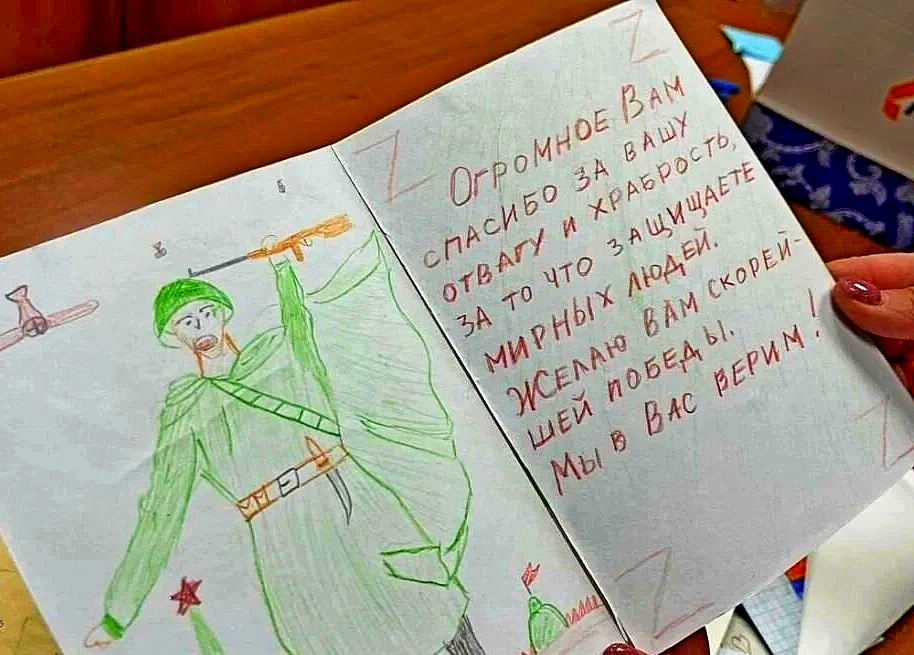 Z
Z
Огромное Вам
спасибо за вашу
отвагу и храбрость,
за то что защищаете
мирных людей.
Желаю вам скорей-
шей победы.
Мы в Вас верим!
Z
Z